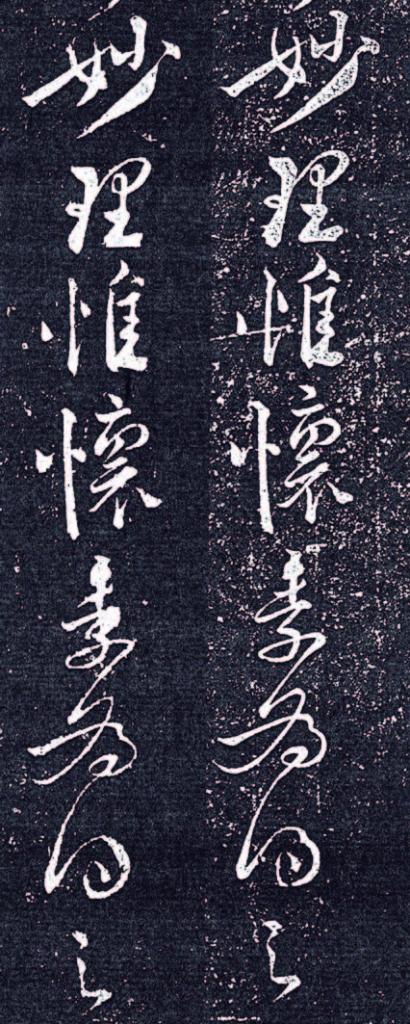 妙理惟懷素為得之
妙理惟懷素為得之